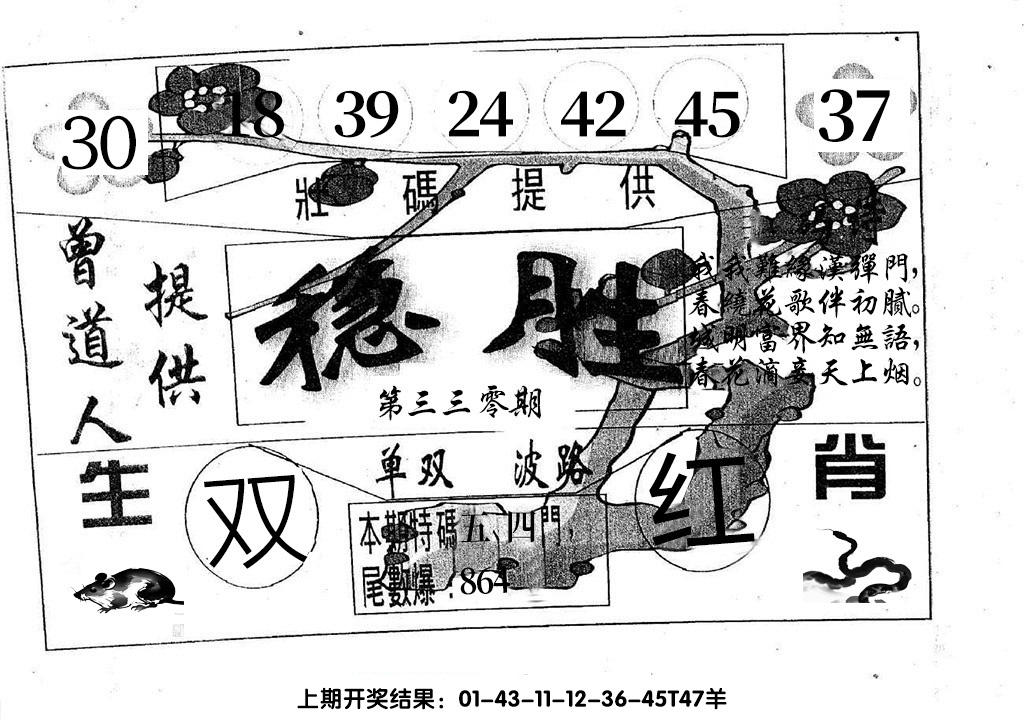 30 18 39 24 42 45 37
壯碼提供
曾道人
提供
稳胜
第三三零期
春燒花歌伴初膩。
城明富界知無語，
天上烟。
单双 波路
生 肖
双 红
本期特碼五、四門，
尾數爆：864
上期开奖结果：01-43-11-12-36-45T47羊